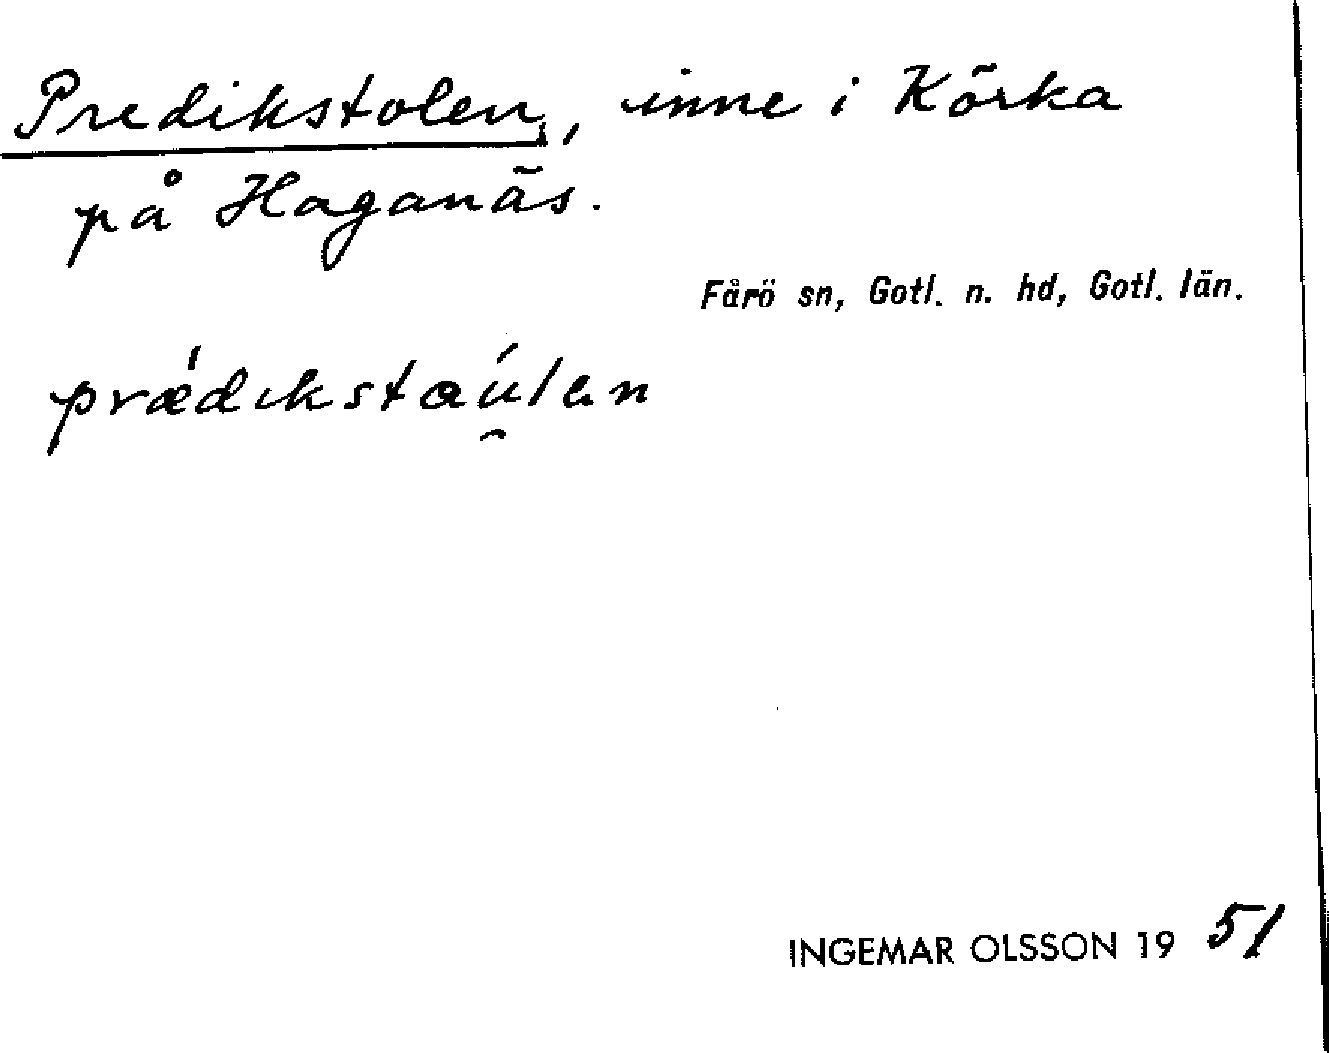 Predikstolen, inne i Körka
på Haganäs.
Fårö sn, Gotl. n. hd, Gotl. län.
prǽdıkstaú̯lən
INGEMAR OLSSON 19 51